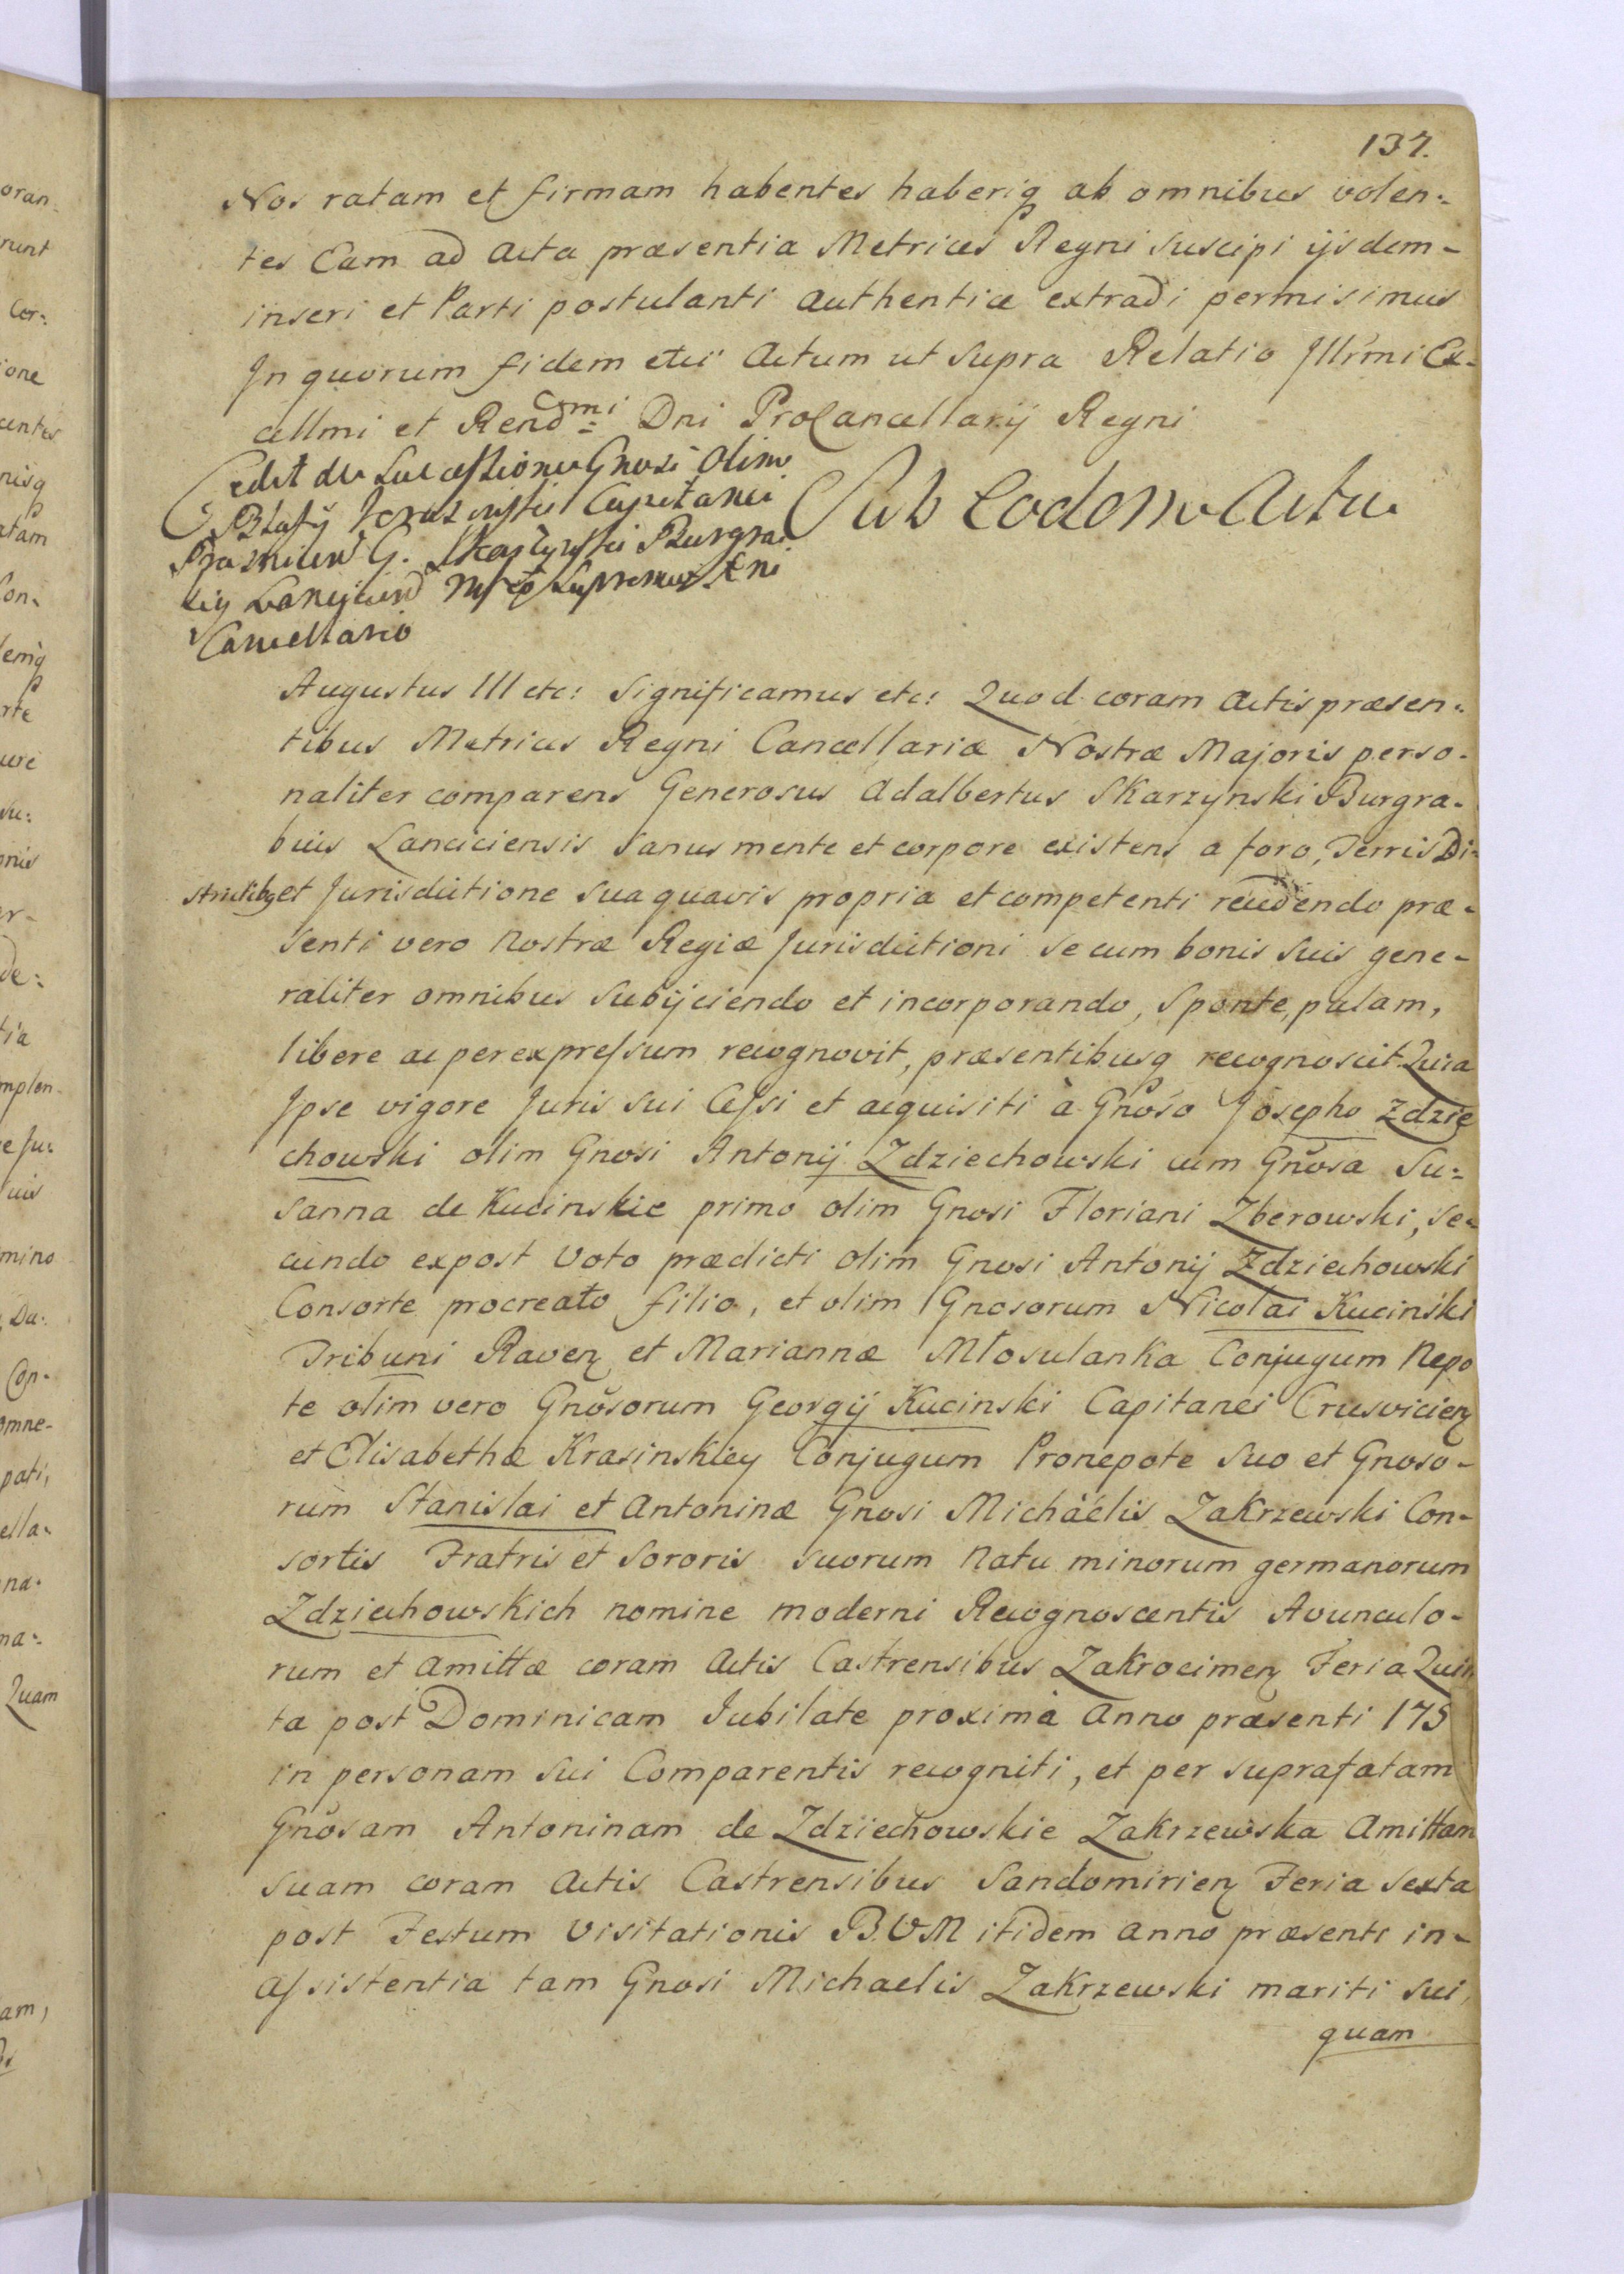 137.
Nos ratam et firmam habentes haberiq ab omnibus volen-
tes Eam ad Acta præsentia Metrices Regni suscipi ijsdem-
inseri et Parti postulanti authentice extradi permisimus
Jn quorum fidem etc Actum ut supra Relatio Jllrmi Ex-
cellmi et Rendmi Dni ProCancellarij Regni
Cedit de Successione Gnosi olim
Capitanei
G. Skarzynski Burgra-
Supremus
Cancellario
Sub Eodem Actu
Augustus III etc: Significamus etc: Quod coram Actis præsen-
tibus Metrices Regni Cancellariæ Nostræ Majoris perso-
naliter comparens Generosus Adalbertus Skarzynski Burgra-
bius Lanciciensis Sanus mente et corpore existens a foro, Terris Di-
strictibq et Jurisdictione sua quavis propria et competenti recedendo præ-
senti vero Nostræ Regiæ Jurisdictioni se cum bonis suis gene-
raliter omnibus subijciendo et incorporando, sponte, palam,
libere ac per expressum recognovit, præsentibusq recognoscit. Quia
Jpse vigore Juris sui Cessi et acquisiti à Gnoso Josepho Zdzie
chowski olim Gnosi Antonij Zdziechowski cum Gnosa Su-
sanna de Kucinskie primo olim Gnosi Floriani Zberowski, se-
cundo expost Voto prædicti olim Gnosi Antonij Zdziechowski
Consorte procreato filio, et olim Gnosorum Nicolai Kucinski
Tribuni Raven et Mariannæ Młosulanka Conjugum Nepo
te olim vero Gnosorum Georgij Kucinski Capitanei Crusvicien
et Elisabethæ Krasinskiey Conjugum Pronepote suo et Gnoso-
rum Stanislai et Antoninæ Gnosi Michäelis Zakrzewski Con-
sortis Fratris et Sororis suorum Natu minorum germanorum
Zdziechowskich nomine moderni Recognoscentis Avunculo-
rum et Amittæ coram Actis Castrensibus Zakrocimen Feria Quin
ta post Dominicam Jubilate proximà Anno præsenti 175
in personam sui Comparentis recogniti, et per suprafatam
Gnosam Antoninam de Zdziechowskie Zakrzewska Amittam
suam coram Actis Castrensibus Sandomirien Feria sexta
post Festum Visitationis B.V.M itidem Anno præsenti in-
assistentia tam Gnosi Michaelis Zakrzewski mariti sui,
quam